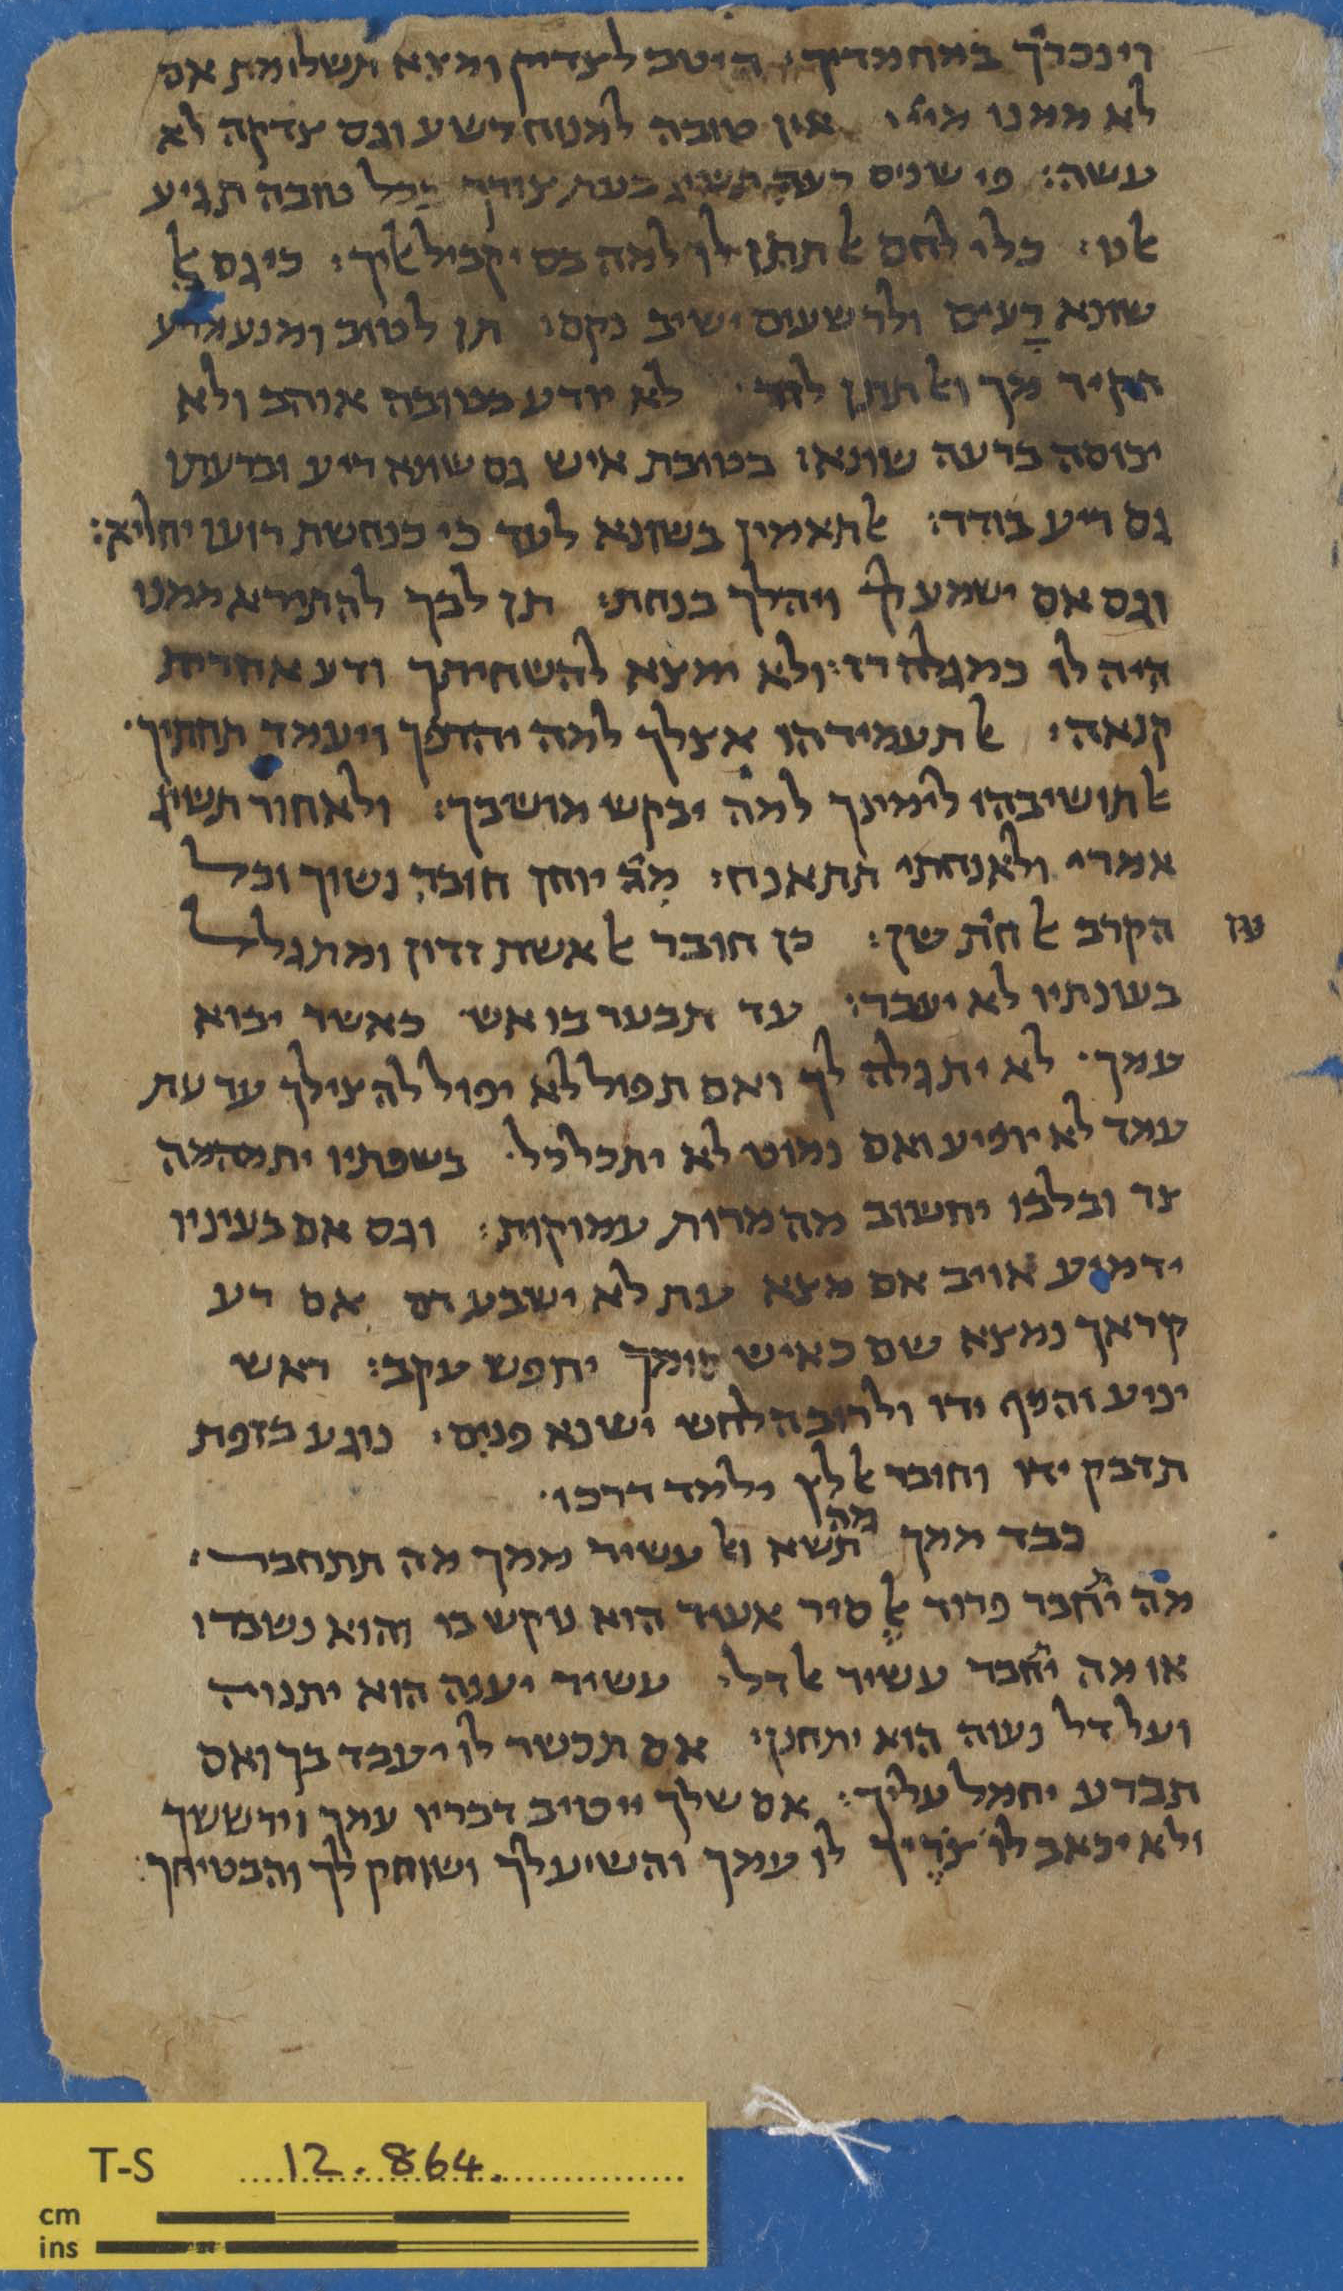 וינכרך במחמדיך: היטב לצדיק ומצא תשלומת אם
לא ממנו מייי אין טובה למנוח רשע וגם צדקה לא
עשה: פי שנים רעה תשיג בעת צורך בכל טובה תגיע
אליו: כלי לחם אל תתן לו למה בם יקביל אליך: כי גם אל
שונא רעים ולרשעים ישיב נקם: תן לטוב ומנע מרע
הקיר מך ואל תתן לזד: לא יודע בטובה אוהב ולא
יכוסה ברעה שונא: בטובת איש גם שונא ריע וברעתו
גם ריע בודד: אל תאמין בשונא לעד כי כנחשת רועו יחליא:
וגם אם ישמע לך ויהלך בנחת: תן לבך להתירא ממנו
היה לו כמגלה רז: ולא ימצא להשחיתך ודע אחרית
קנאה: אל תעמידהו אצלך למה יהדפך ויעמד תחתיך:
אל תושיבהו לימינך למה יבקש מושבך: ולאחור תשיג
אמרי ולאנחתי תתאנח: מה יוחן חובר נשוך וכל
הקרב אל חית שן: כן חובר אל אשת זדון ומתגלל
בעונתיו לא יעבר: עד תבער בו אש כאשר יבוא
עמך לא יתגלה לך ואם תפול לא יפול להצילך עד עת
עמד לא יופיע ואם נמוט לא יתכלכל: בשפתיו יתמהמה
צר ובלבו יחשוב מהמרות עמוקות: וגם אם בעיניו
ידמיע אויב אם מצא עת לא ישבע דם אם רע
קראך נמצא שם כאיש סומך יחפש עקב: ראש
יניע והניף ידו ולרוב הלחש ישנא פנים: נוגע בזפת
תדבק ידו וחובר אל לץ ילמד דרכו:
כבד ממך מה תשא ואל עשיר ממך מה תתחבר:
מה יתחבר פרור אל סיר אשר הוא נוקש בו והוא נשבר:
או מה יתחבר עשיר אל דל: עשיר יענה הוא יתנוה
ועל דל נעוה הוא יתחנן: אם תכשר לו יעבד בך ואם
תכרע יחמל עליך: אם שלך ייטיב דבריו עמך וירששך
ולא יכאב לו: צריך לו עמך והשיע לך ושוחק לך והבטיחך:
T-S 12.864.
cm
ins